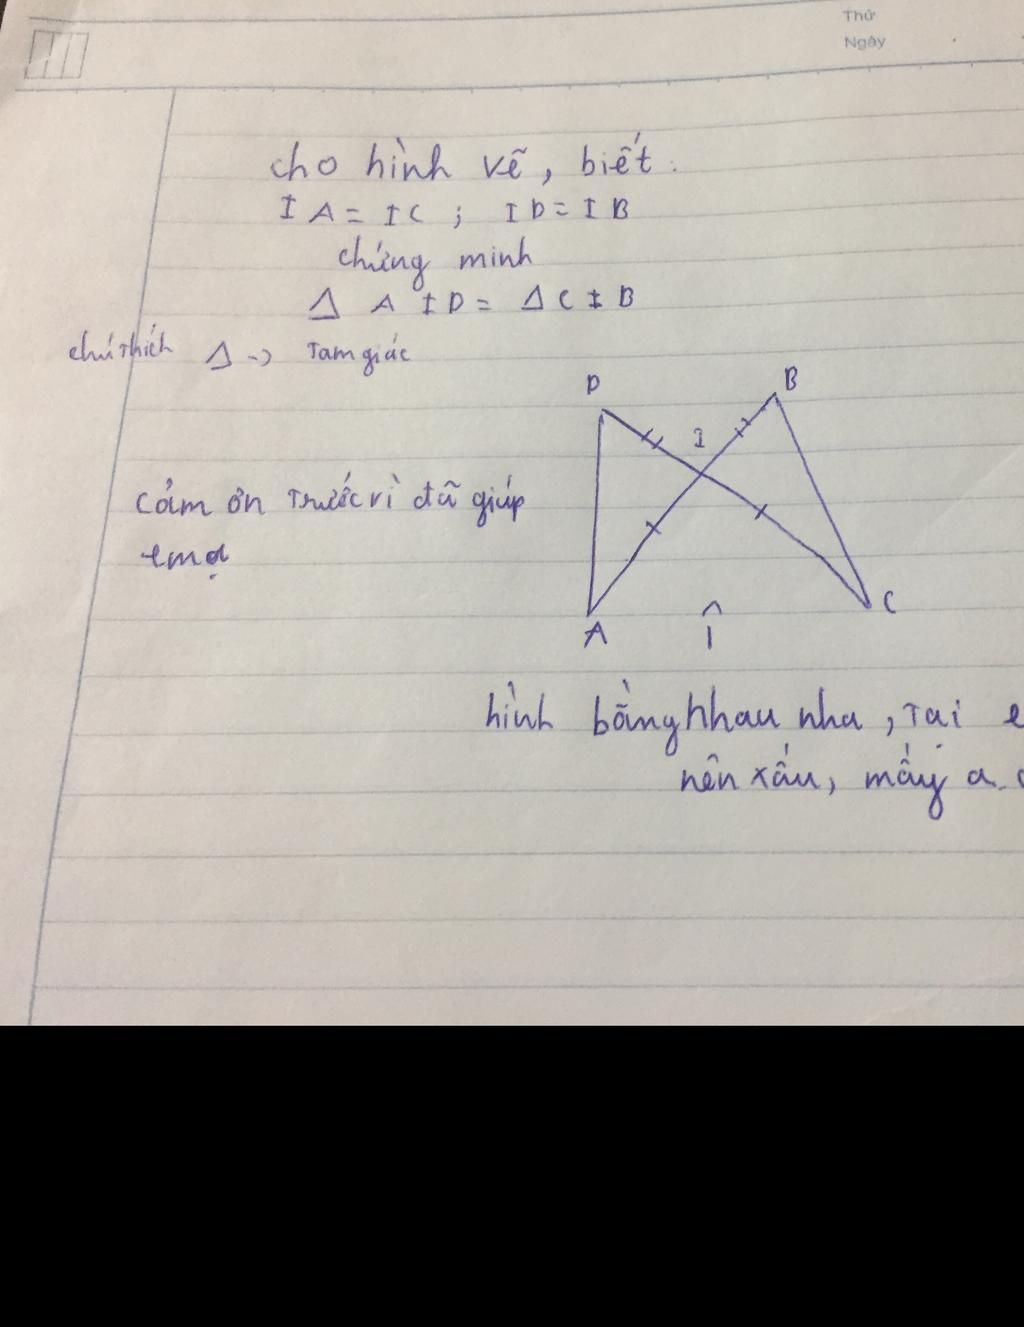 Thứ
Ngày
cho hình vẽ, biết:
IA = IC ; ID = IB
chứng minh
Δ AID = Δ CIB
chú thích Δ -> Tam giác
D
B
I
cảm ơn trước vì đã giúp
em ạ
A
I
C
hình bằng nhau nha, Tại e
nên xấu, mấy a.